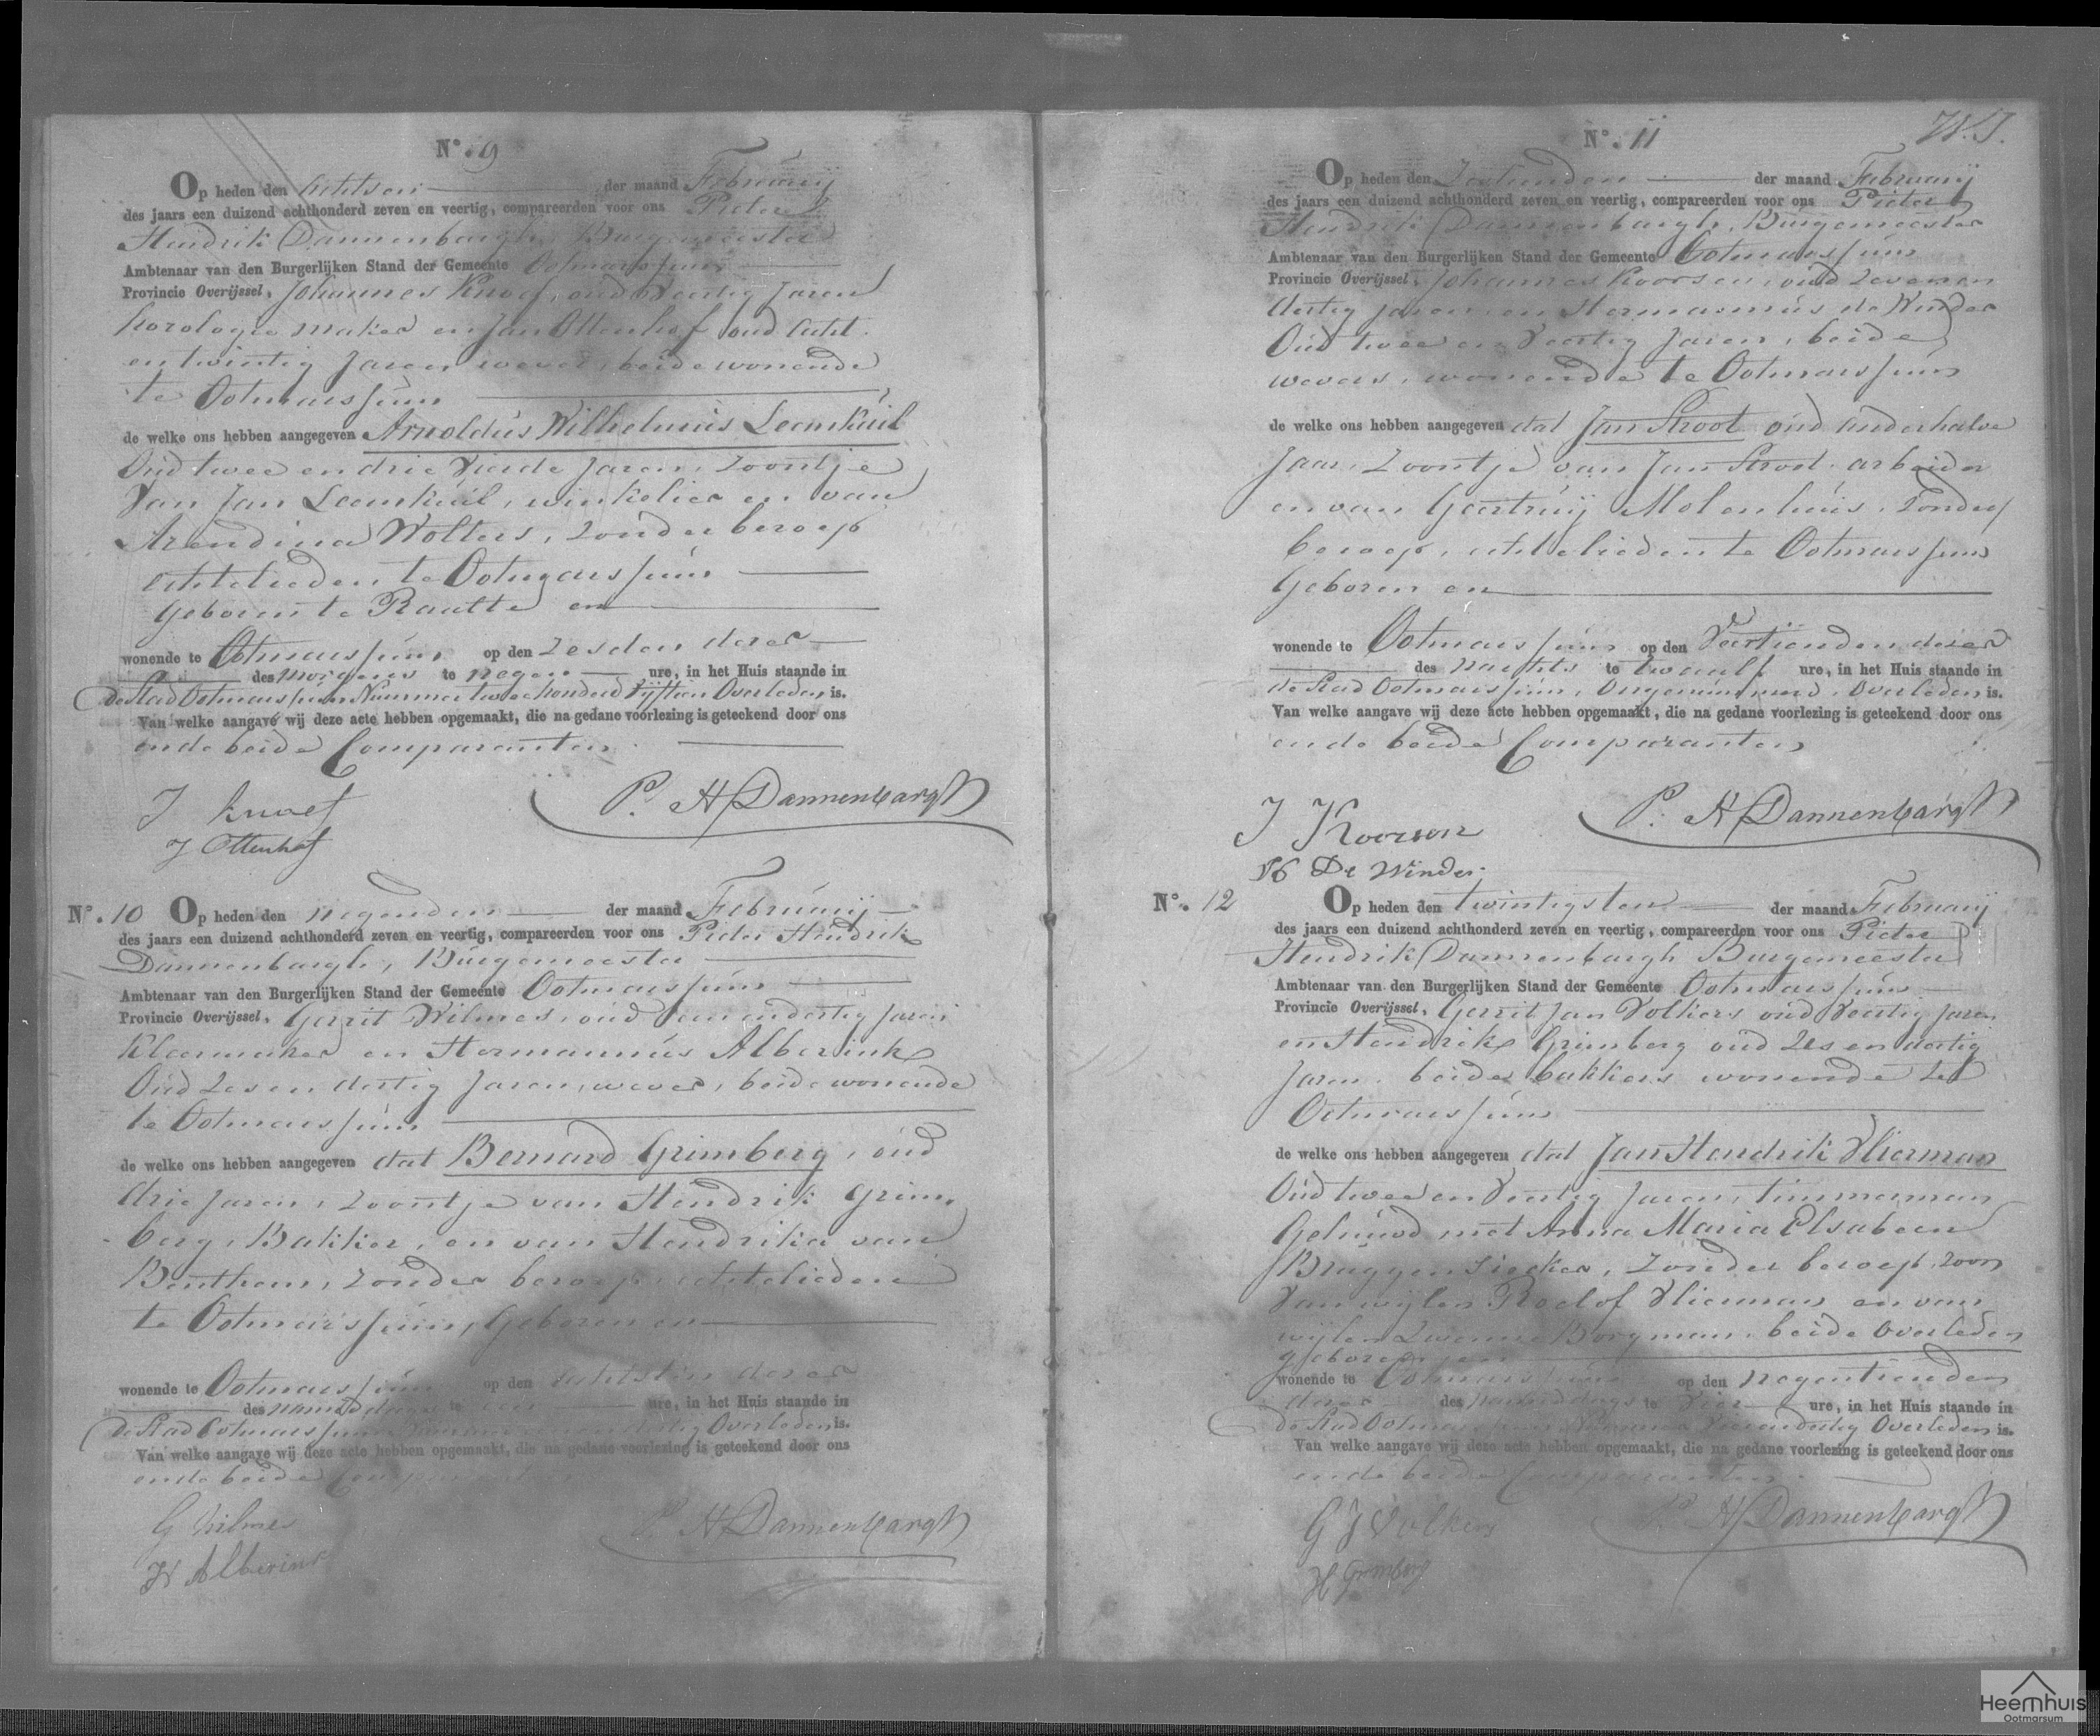 N°. 9
Op heden den achtsten der maand Februarij
des jaars een duizend achthonderd zeven en veertig, compareerden voor ons Pieter
Hendrik Dannenbargh, Burgemeester
Ambtenaar van den Burgerlijken Stand der Gemeente Ootmarssum
Provincie Overijssel, Johannes Knoef, oud Veertig Jaren
horologie maker en Jan Ottenhof oud acht
en twintig Jaren wever, beide wonende
te Ootmarssum
de welke ons hebben aangegeven Arnoldus Wilhelmus Leemkuil
Oud twee en drie Vierde Jaren, Zoontje
Van Jan Leemkuil, winkelier en van
Arendina Wolters, zonder beroep
echtelieden te Ootmarssum
geboren te Raalte en
wonende te Ootmarssum op den zesden dezer
des morgens te negen ure, in het Huis staande in
de Stad Ootmarssum Nummer twee honderd Vijftien Overleden is.
Van welke aangave wij deze acte hebben opgemaakt, die na gedane voorlezing is geteekend door ons
en de beide Comparanten
J Knoef
P. H Dannenbargh
J Ottenhof
N°. 10 Op heden den negenden der maand Februarij
des jaars een duizend achthonderd zeven en veertig, compareerden voor ons Pieter Hendrik
Dannenbargh, Burgemeester
Ambtenaar van den Burgerlijken Stand der Gemeente Ootmarssum
Provincie Overijssel, Gerrit Wilmes, oud een en dertig Jaren
Kleermaker en Hermannus Alberink
Oud zes en dertig Jaren, wever, beide wonende
te Ootmarssum
de welke ons hebben aangegeven dat Bernard Grimberg, oud
drie Jaren, Zoontje van Hendrik Grim
berg, Bakker, en van Hendrika van
Benthem, zonder beroep echtelieden
te Ootmarssum, Geboren en
wonende te Ootmarssum op den achtsten dezer
des namiddags te een ure, in het Huis staande in
de Stad Ootmarssum Overleden is.
Van welke aangave wij deze acte hebben opgemaakt, die na gedane voorlezing is geteekend door ons
en de beide Comparanten
G Wilmes
P. H Dannenbargh
H Alberink
N°. 11
Op heden den Zestienden der maand Februarij
des jaars een duizend achthonderd zeven en veertig, compareerden voor ons Pieter
Hendrik Dannenbargh, Burgemeester
Ambtenaar van den Burgerlijken Stand der Gemeente Ootmarssum
Provincie Overijssel, Johannes Koorsen, oud Zeven en
dertig Jaren en Hermannus de Winder
Oud twee en Veertig Jaren, beide
wevers, wonende te Ootmarssum
de welke ons hebben aangegeven dat Jan Stroot oud anderhalve
Jaar, Zoontje van Jan Stroot arbeider
en van Geertruij Molenhuis, zonder
beroep, echtelieden te Ootmarssum
Geboren en
wonende te Ootmarssum op den Veertienden dezer
des nachts te twaalf ure, in het Huis staande in
de Stad Ootmarssum, Ongenummerd, Overleden is.
Van welke aangave wij deze acte hebben opgemaakt, die na gedane voorlezing is geteekend door ons
en de beide Comparanten
J Koorsen
P. H Dannenbargh
H De Winder
N°. 12 Op heden den twintigsten der maand Februarij
des jaars een duizend achthonderd zeven en veertig, compareerden voor ons Pieter
Hendrik Dannenbargh Burgemeester
Ambtenaar van den Burgerlijken Stand der Gemeente Ootmarssum
Provincie Overijssel, Gerrit Jan Volkers oud Veertig Jaren
en Hendrik Grimberg oud zes en dertig
Jaren, beide bakkers wonende te
Ootmarssum
de welke ons hebben aangegeven dat Jan Hendrik Vlierman
Oud twee en Veertig Jaren, timmerman
Gehuwd met Anna Maria Elsabeen
Bruggensieker, Zonder beroep, zoon
Van wijlen Roelof Vlierman en van
wijlen Zwenne Borgman, beide Overleden
geboren en
wonende te Ootmarssum op den negentienden
dezer des namiddags te Vier ure, in het Huis staande in
de Stad Ootmarssum Nummer Vier en dertig Overleden is.
Van welke aangave wij deze acte hebben opgemaakt, die na gedane voorlezing is geteekend door ons
en de beide Comparanten
G J Volkers
P. H Dannenbargh
H Grimberg
Heemhuis
Ootmarsum